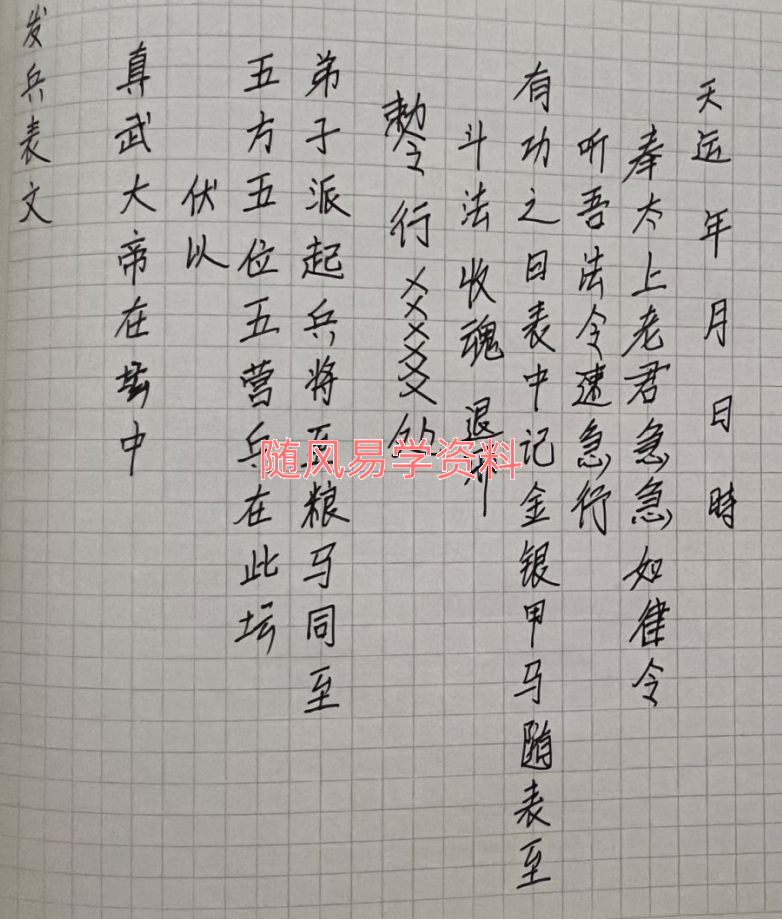 发兵表文
真武大帝在坛中
伏以
五方五位五营兵在此坛
弟子派起兵将 粮马同至
勅令 行 XXXXX
斗法收魂 退
有功之日表中记金银甲马随表至
听吾法令速急行
奉太上老君急急如律令
天运 年 月 日 時
随风易学资料